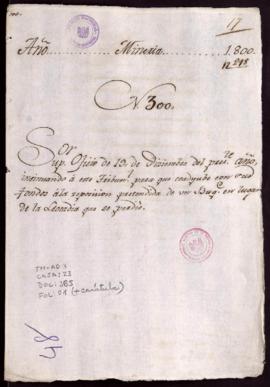 17
Año Mineria 1.800.
N. 300.
Sor
Sup. Ofício de 19 de Diciembre del pres.te año,
insinuando á este Tribun.l para que coadyube con sus
fondos á la reposicion pretendida de un Buq.e en lugar
de la Leocadia que se perdió.
TM-AD 1
CAJA: 23
DOC: 385
FOL: 01 (+ carátula)
48